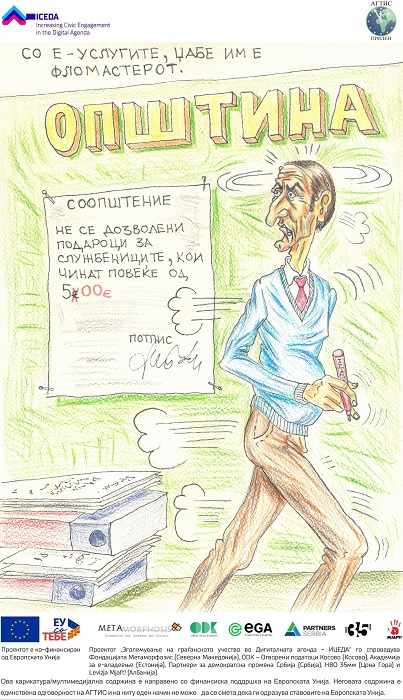 ICEDA
Increasing Civic Engagement
in the Digital Agenda
АГТИС
ПРИЛЕП
СО Е-УСЛУГИТЕ, ЏАБЕ ИМ Е
ФЛОМАСТЕРОТ.
ОПШТИНА
СООПШТЕНИЕ
НЕ СЕ ДОЗВОЛЕНИ
ПОДАРОЦИ ЗА
СЛУЖБЕНИЦИТЕ, КОИ
ЧИНАТ ПОВЕЌЕ ОД,
500€
ПОТПИС
ЕУ
СО
ТЕБЕ
METAMORPHOSIS
ODK
eGA
PARTNERS
SERBIA
35
MJAFT!
Проектот е ко-финансиран
од Европската Унија
Проектот „Зголемување на граѓанското учество во Дигиталната агенда – ИЦЕДА“ го спроведува
Фондацијата Метаморфозис (Северна Македонија), ODK – Отворени податоци Косово (Косово), Академија
за е-владеење (Естонија), Партнери за демократска промена Србија (Србија), НВО 35мм (Црна Гора) и
Levizja Mjaft! (Албанија).
Оваа карикатура/мултимедијална содржина е направено со финансиска поддршка на Европската Унија. Неговата содржина е
единствена одговорност на АГТИС и на ниту еден начин не може да се смета дека ги одразува ставовите на Европската Унија.